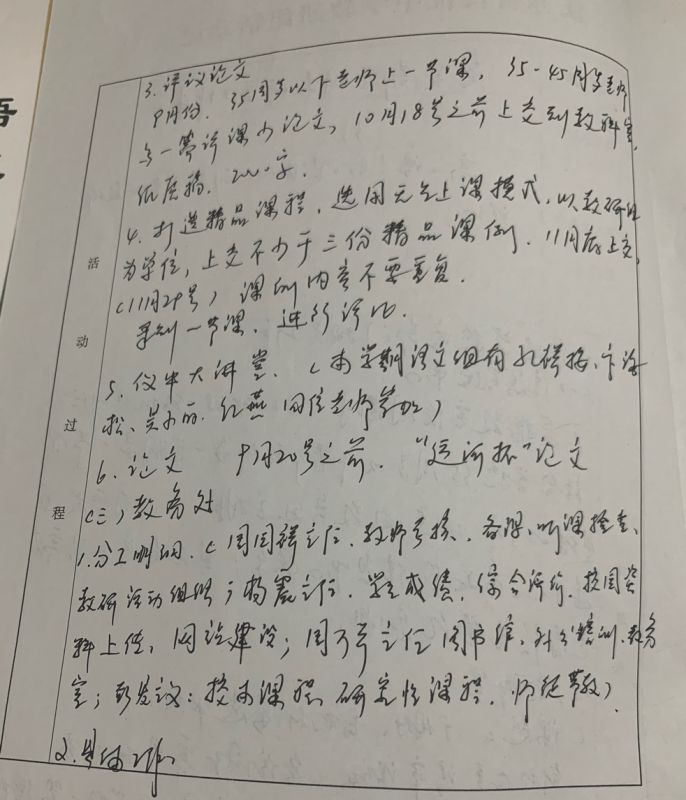 3. 评议论文
9月份. 35周岁以下老师上一节课, 35-45周岁老师
写一篇评课小论文, 10月18号之前上交到教科室,
纸质稿. 2000字.
4. 打造精品课程, 选用无生上课模式, 以教研组
为单位, 上交不少于三份精品课例. 11月底上交,
(11月29号) 课例内容不要重复.
录制一节课, 进行评比.
5. 仪中大讲堂. (本学期语文组有孔祥楼、卞海
松、吴小丽. 红燕 四位老师参加)
6. 论文 9月20号之前. “运河杯”论文
(三) 教务处
1. 分工明细. (周国祥主任. 教师考核、备课、听课检查、
教研活动组织; 杨震主任. 学生成绩, 综合评价, 校园资
料上传, 网站建设; 周万平主任 图书馆、补习培训、教务
室; 彭发议: 校本课程 研究性课程. 师徒带教)
2. 具体工作
活
动
过
程
语